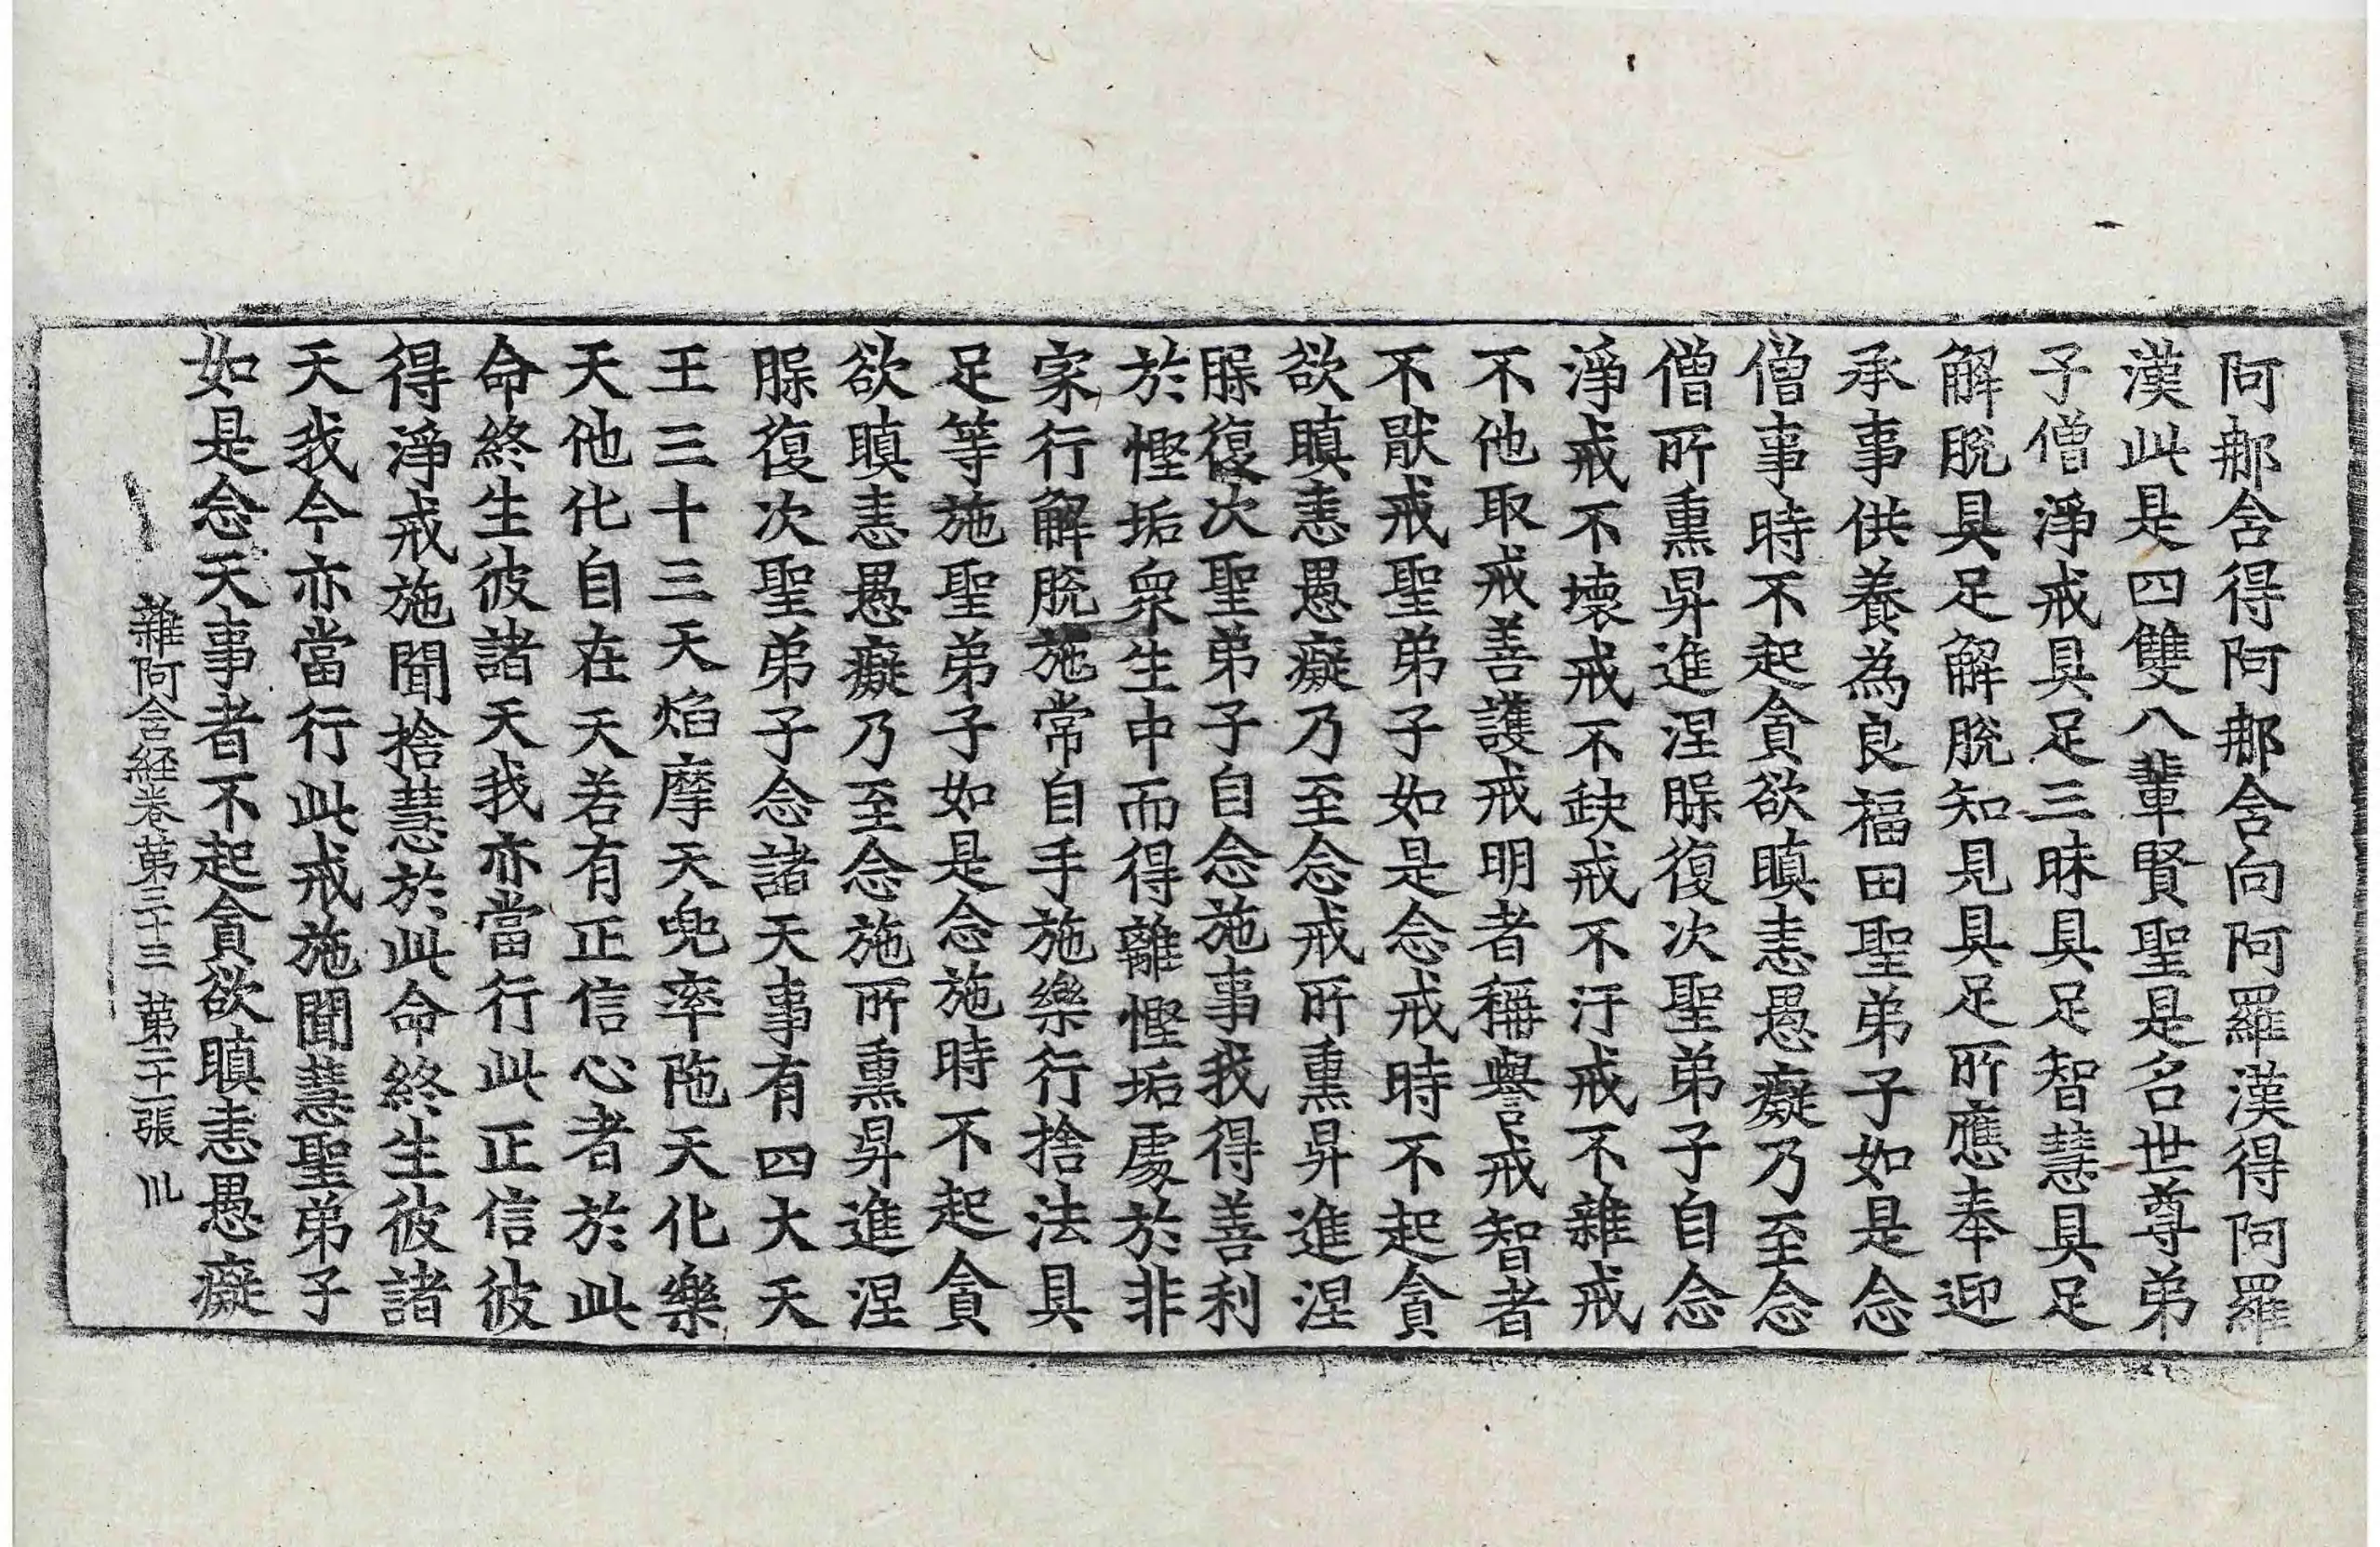 阿那舍得阿那舍向阿羅漢得阿羅
漢此是四雙八輩賢聖是名世尊弟
子僧淨戒具足三昧具足智慧具足
解脫具足解脫知見具足所應奉迎
承事供養為良福田聖弟子如是念
僧事時不起貪欲瞋恚愚癡乃至念
僧所熏昇進涅槃復次聖弟子自念
淨戒不壞戒不缺戒不汙戒不雜戒
不他取戒善護戒明者稱譽戒智者
不猒戒聖弟子如是念戒時不起貪
欲瞋恚愚癡乃至念戒所熏昇進涅
槃復次聖弟子自念施事我得善利
於慳垢衆生中而得離慳垢處於非
家行解脫施常自手施樂行捨法具
足等施聖弟子如是念施時不起貪
欲瞋恚愚癡乃至念施所熏昇進涅
槃復次聖弟子念諸天事有四大天
王三十三天焰摩天兜率陁天化樂
天他化自在天若有正信心者於此
命終生彼諸天我亦當行此正信彼
得淨戒施聞捨慧於此命終生彼諸
天我今亦當行此戒施聞慧聖弟子
如是念天事者不起貪欲瞋恚愚癡
雜阿含經卷第三十三 第二十一張